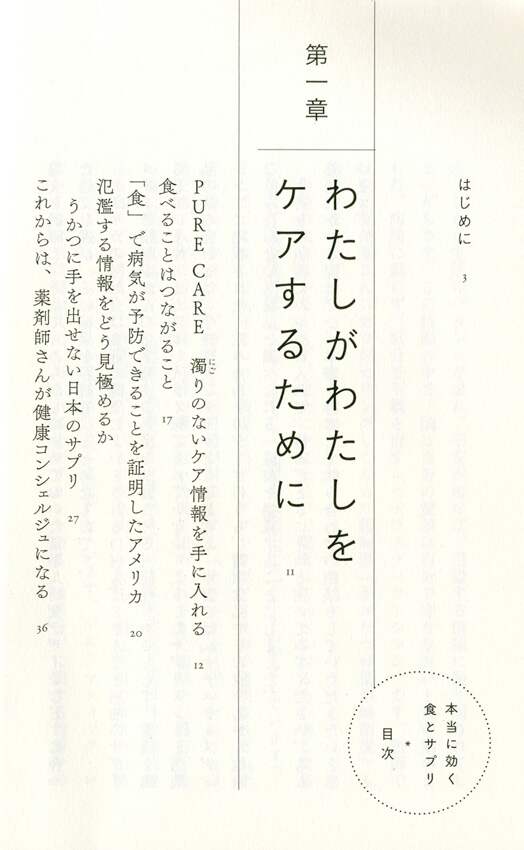 本当に効く
食とサプリ
*
目次
はじめに 3
第一章
わたしがわたしを
ケアするために 11
PURE CARE 濁りのないケア情報を手に入れる 12
にご
食べることはつながること 17
「食」で病気が予防できることを証明したアメリカ 20
氾濫する情報をどう見極めるか
うかつに手を出せない日本のサプリ 27
これからは、薬剤師さんが健康コンシェルジュになる 36